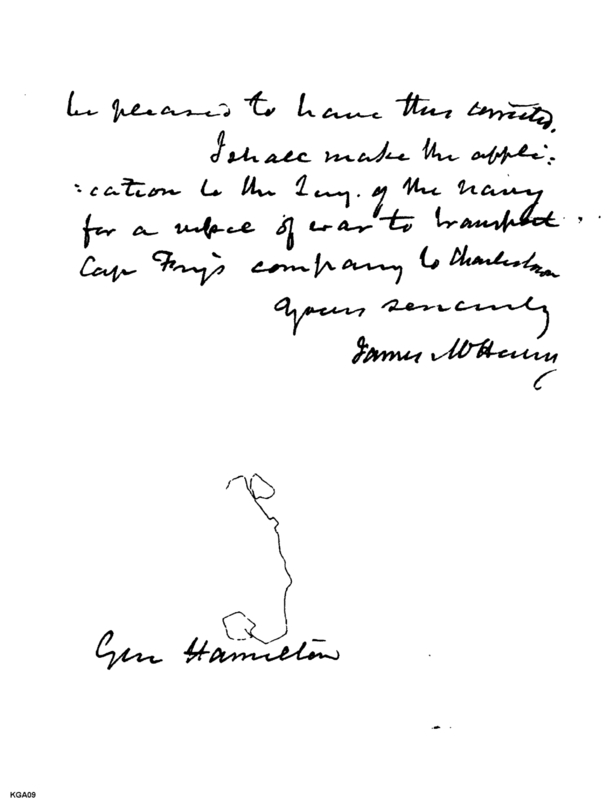 be pleased to have this corrected.
I shall make the appli:
:cation to the Secy. of the navy
for a vessel of war to transport
Cap Frys company to Charleston
Yours sincerely
James McHenry
Gen Hamilton
KGA09